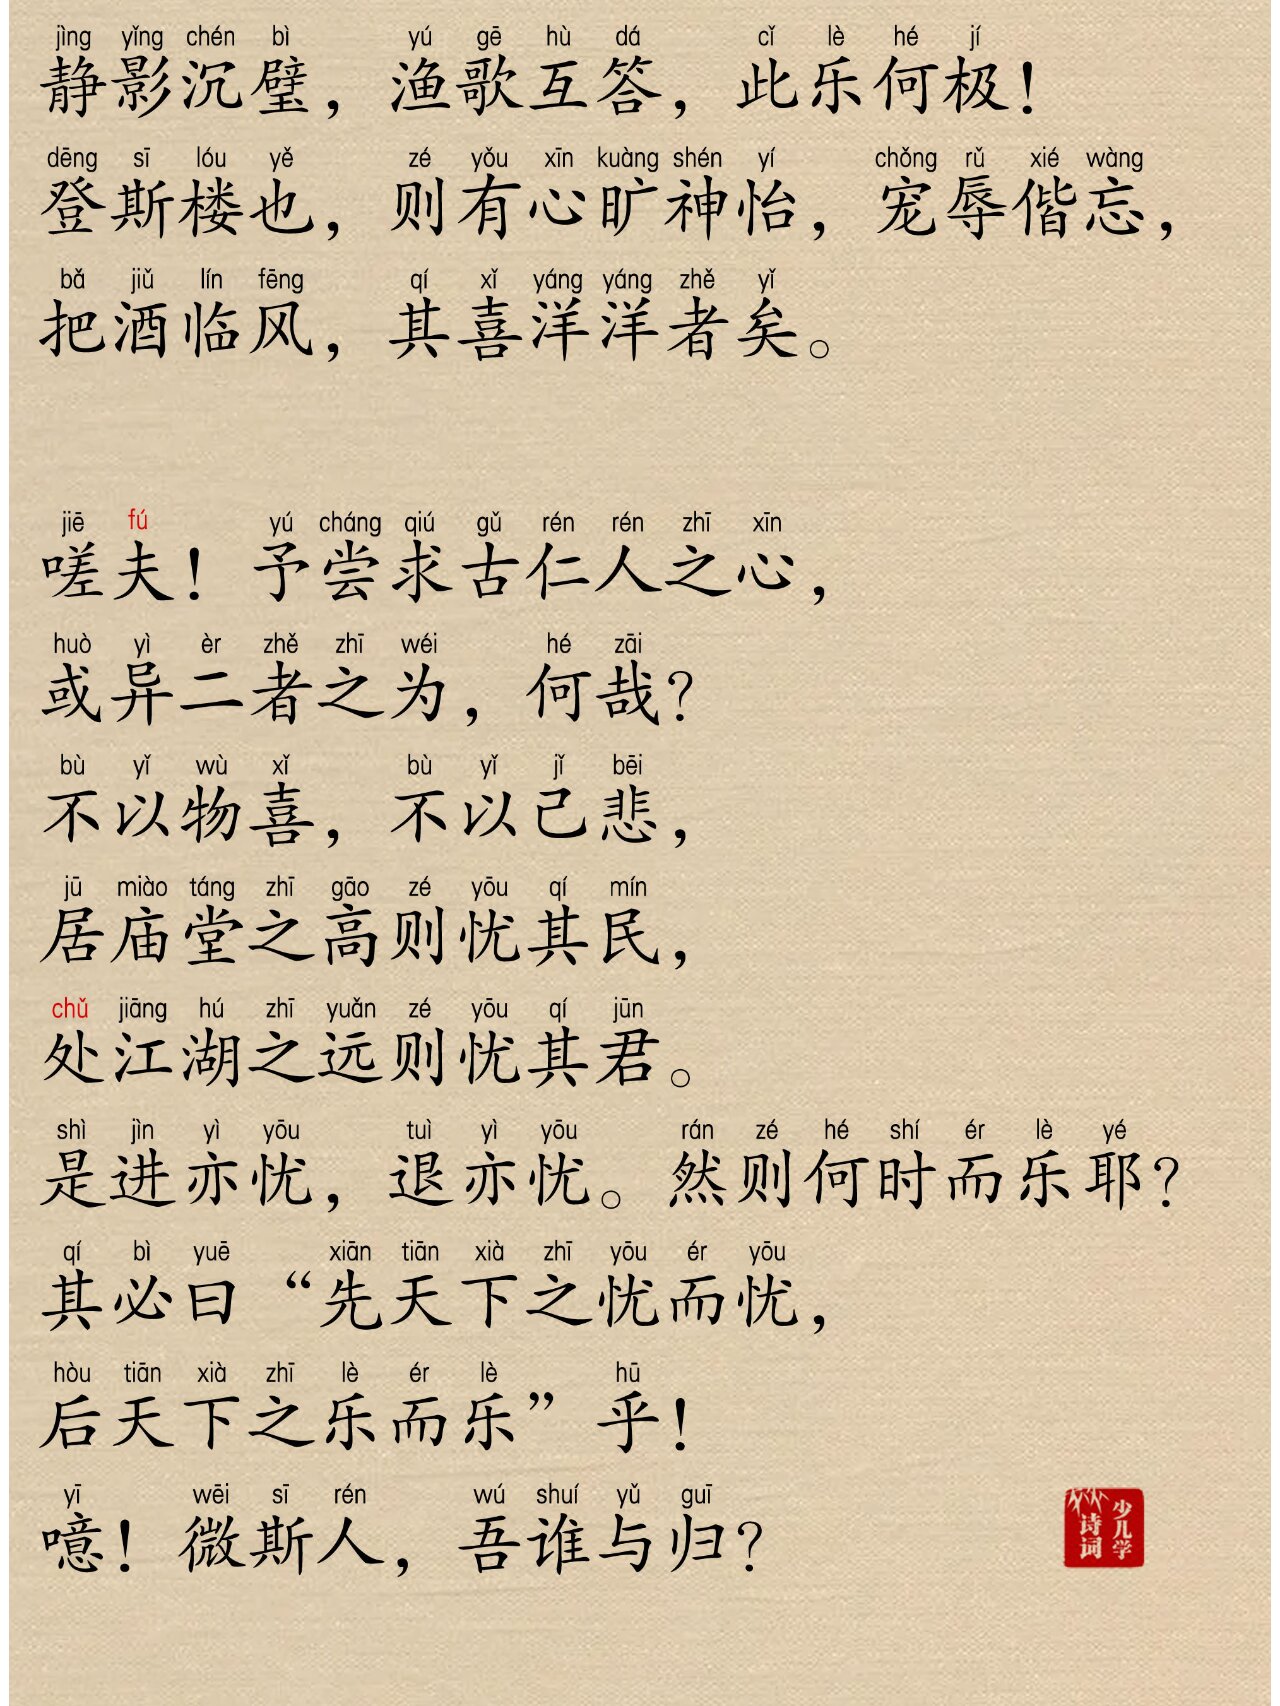 jìng yǐng chén bì yú gē hù dá cǐ lè hé jí
静影沉璧，渔歌互答，此乐何极！
dēng sī lóu yě zé yǒu xīn kuàng shén yí chǒng rǔ xié wàng
登斯楼也，则有心旷神怡，宠辱偕忘，
bǎ jiǔ lín fēng qí xǐ yáng yáng zhě yǐ
把酒临风，其喜洋洋者矣。
jiē fú yú cháng qiú gǔ rén rén zhī xīn
嗟夫！予尝求古仁人之心，
huò yì èr zhě zhī wéi hé zāi
或异二者之为，何哉？
bù yǐ wù xǐ bù yǐ jǐ bēi
不以物喜，不以己悲，
jū miào táng zhī gāo zé yōu qí mín
居庙堂之高则忧其民，
chǔ jiāng hú zhī yuǎn zé yōu qí jūn
处江湖之远则忧其君。
shì jìn yì yōu tuì yì yōu rán zé hé shí ér lè yé
是进亦忧，退亦忧。然则何时而乐耶？
qí bì yuē xiān tiān xià zhī yōu ér yōu
其必曰“先天下之忧而忧，
hòu tiān xià zhī lè ér lè hū
后天下之乐而乐”乎！
yī wēi sī rén wú shuí yǔ guī
噫！微斯人，吾谁与归？
少儿学
诗词